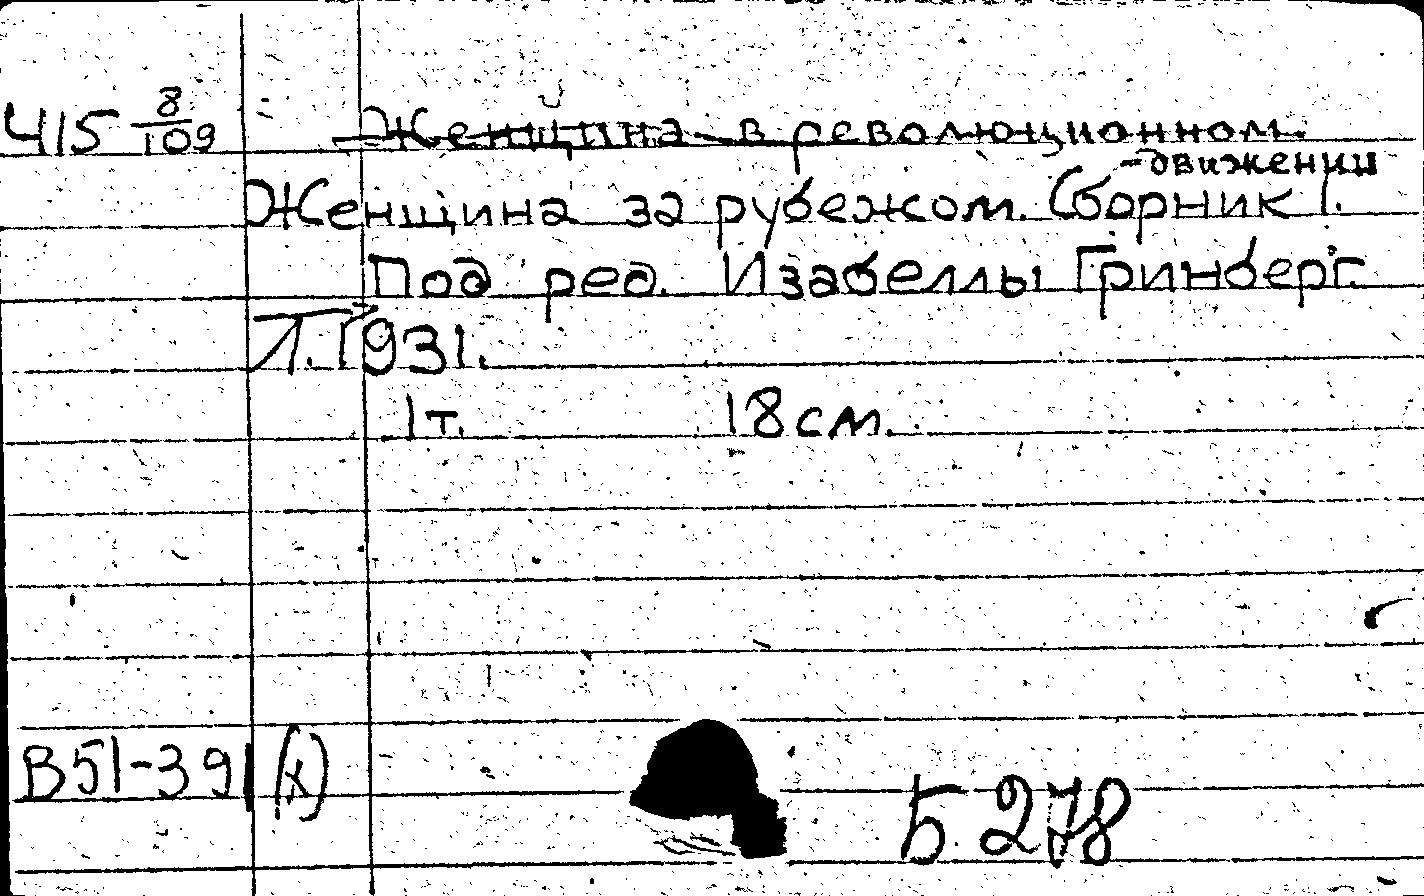 Ч15 8/109 Женщина в революционном
движении
Женщина за рубежом. Сборник 1.
Под ред. Изабеллы Гринберг.
Л. 1931.
1 т. 18 см.
В51-391 (х)
Б. 278